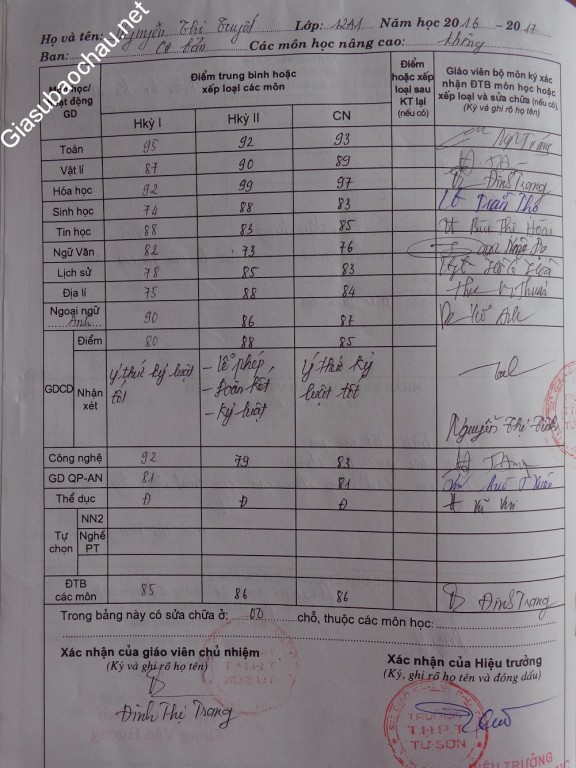 Giasubaochau.net
Họ và tên: Nguyễn Thị Tuyết Lớp: 12A1 Năm học 2016 - 2017
Ban: Cơ bản Các môn học nâng cao: không
Môn học/ Hoạt động GD
Điểm trung bình hoặc xếp loại các môn
Điểm hoặc xếp loại sau KT lại (nếu có)
Giáo viên bộ môn ký xác nhận ĐTB môn học hoặc xếp loại và sửa chữa (nếu có)
(Ký và ghi rõ họ tên)
Hkỳ I Hkỳ II CN
Toán 95 92 93
Vật lí 87 90 89
Hóa học 92 99 97 Đinh Trang
Sinh học 74 88 83 Trần Thơ
Tin học 88 83 85 Bùi Thị
Ngữ Văn 82 73 76
Lịch sử 78 85 83
Địa lí 75 88 84
Ngoại ngữ Anh 90 86 87 Anh
GDCD Điểm 80 88 85
Nhận xét
ý thức kỷ luật tốt
- Lễ phép
- Đoàn kết
- kỷ luật
ý thức kỷ luật tốt
Nguyễn Thị Tình
Công nghệ 92 79 83
GD QP-AN 81 81
Thể dục Đ Đ Đ
Tự chọn
NN2
Nghề PT
ĐTB các môn 85 86 86 Đinh Trang
Trong bảng này có sửa chữa ở: 00 chỗ, thuộc các môn học:
Xác nhận của giáo viên chủ nhiệm
(Ký và ghi rõ họ tên)
Đinh Thị Trang
Xác nhận của Hiệu trưởng
(Ký, ghi rõ họ tên và đóng dấu)
TRƯỜNG
T.H.P.T
TỪ SƠN
HIỆU TRƯỞNG